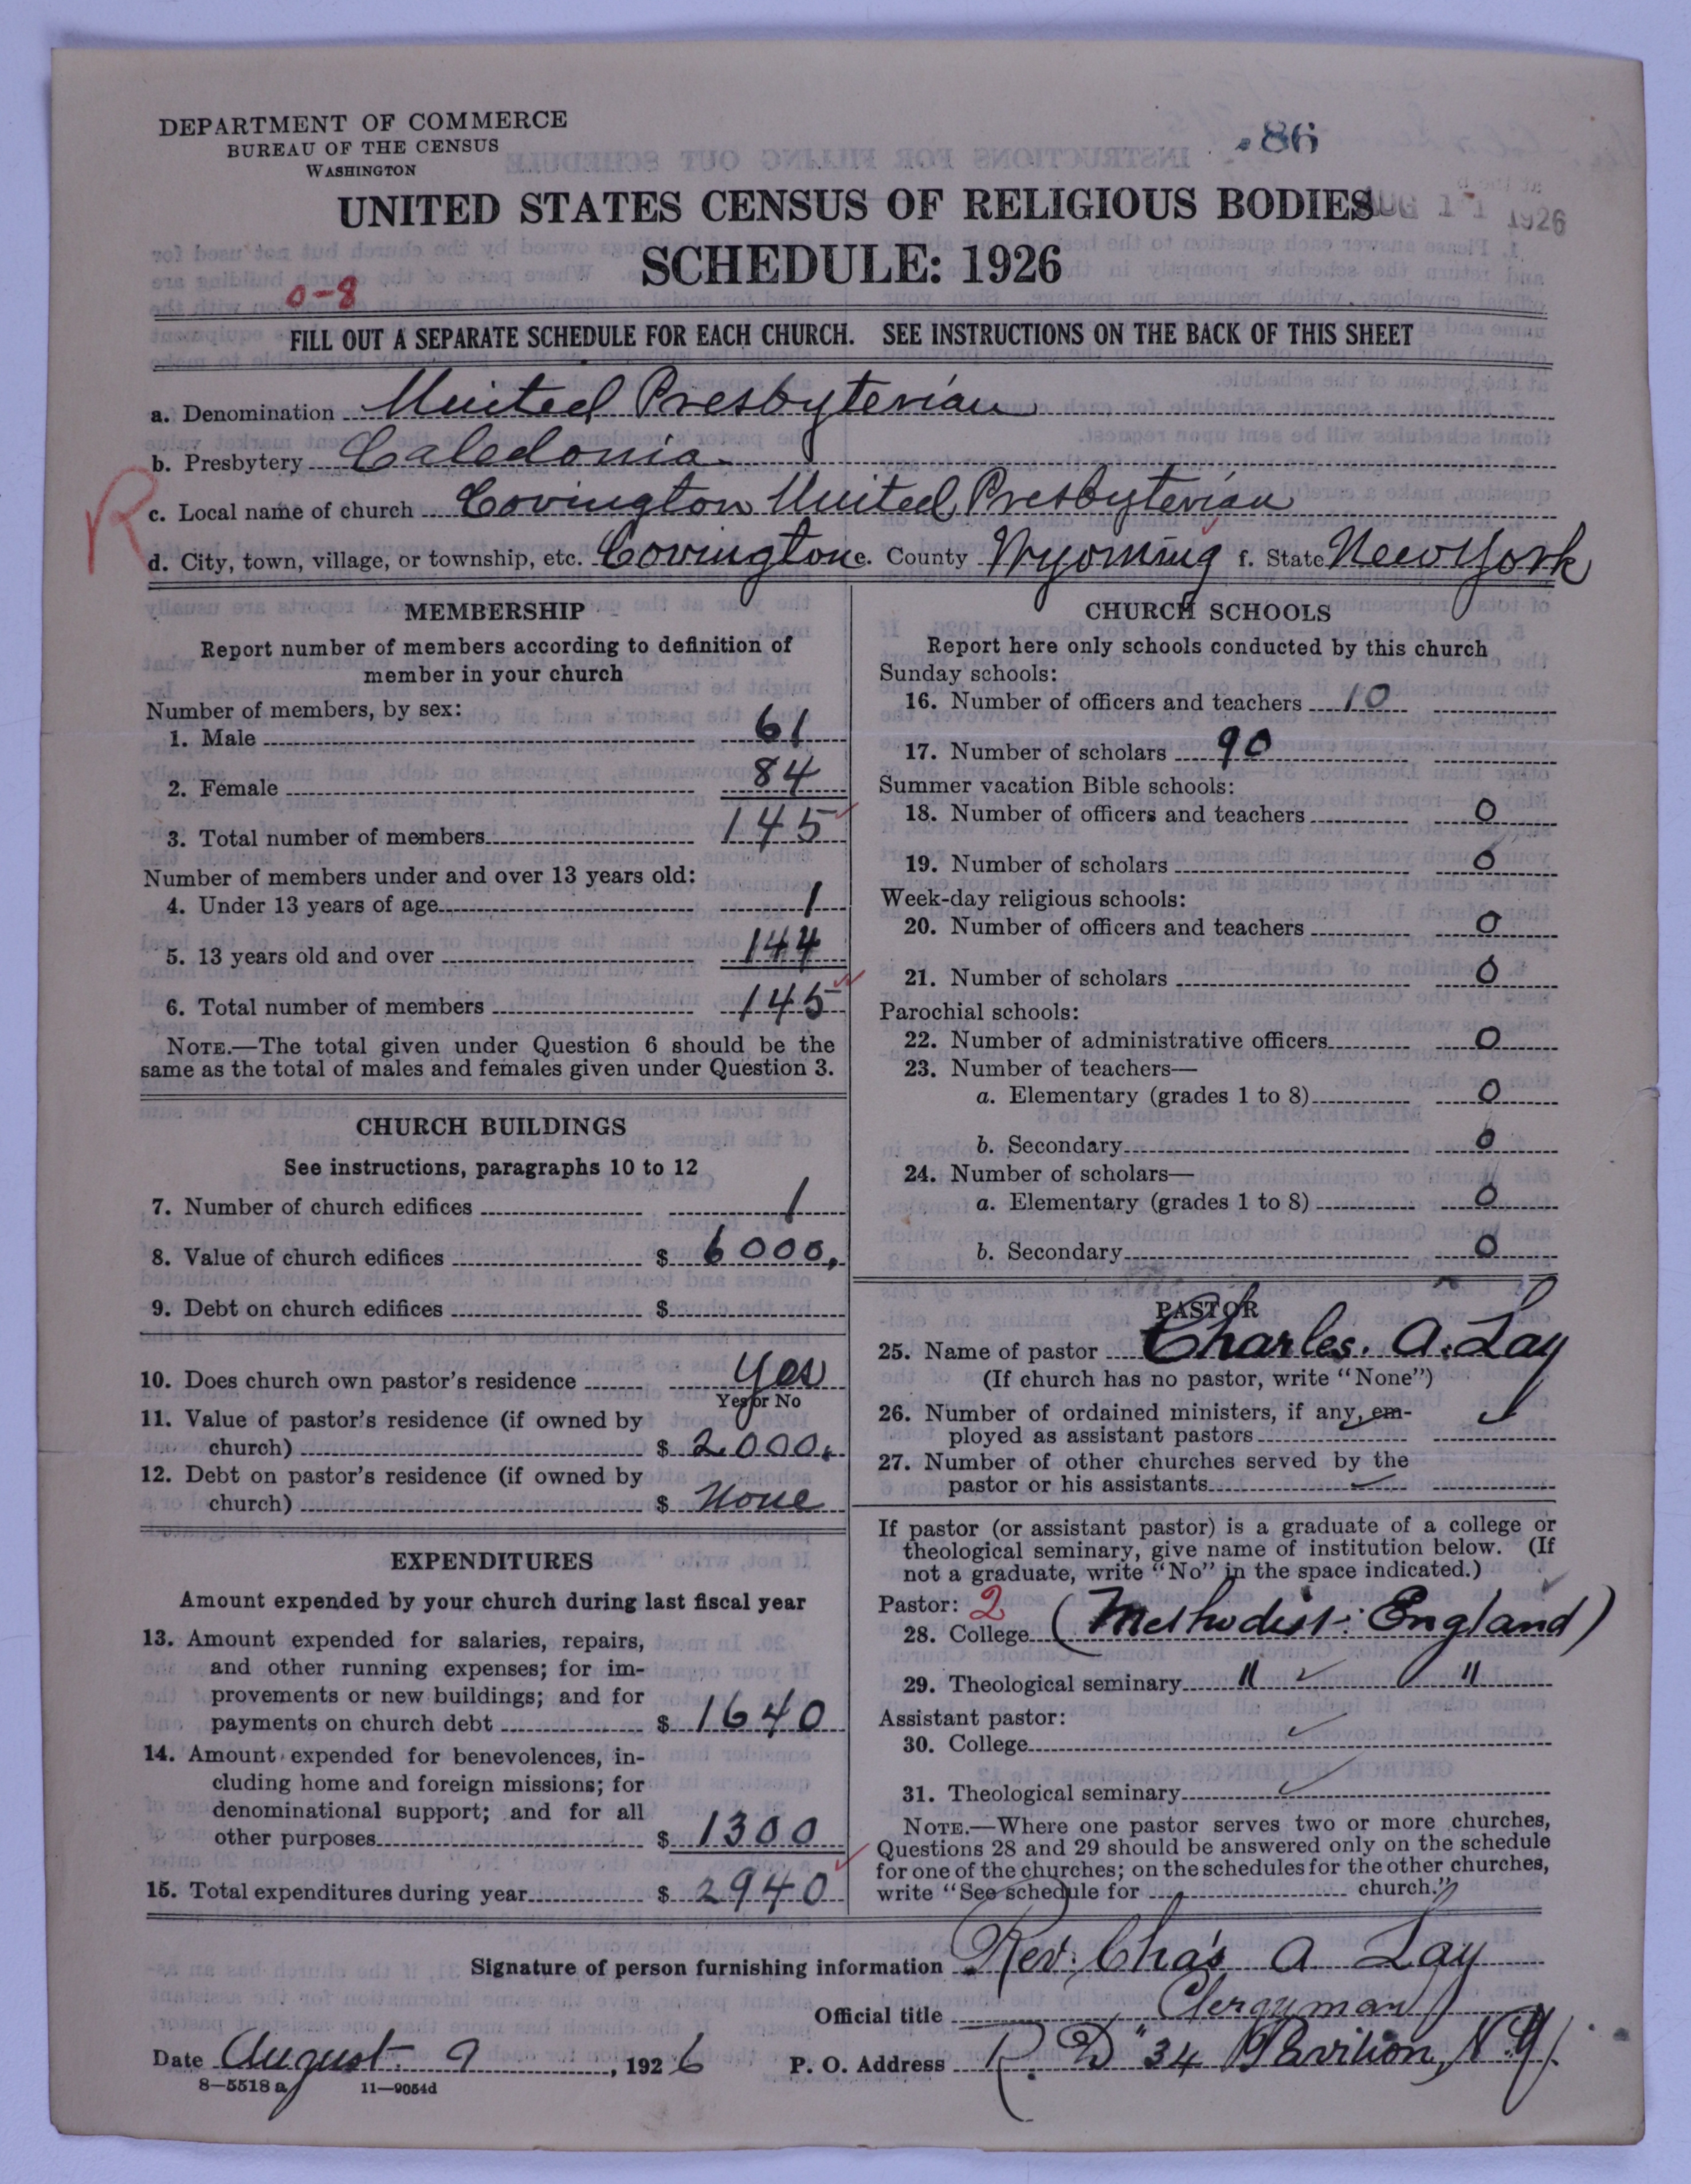 DEPARTMENT OF COMMERCE
BUREAU OF THE CENSUS
WASHINGTON
86
UNITED STATES CENSUS OF RELIGIOUS BODIES
AUG 11 1926
SCHEDULE: 1926
0-8
FILL OUT A SEPARATE SCHEDULE FOR EACH CHURCH. SEE INSTRUCTIONS ON THE BACK OF THIS SHEET
a. Denomination United Presbyterian
b. Presbytery Caledonia
R
c. Local name of church Covington United Presbyterian
d. City, town, village, or township, etc. Covington e. County Wyoming f. State New York
MEMBERSHIP
Report number of members according to definition of
member in your church
Number of members, by sex:
1. Male 61
2. Female 84
3. Total number of members 145
Number of members under and over 13 years old:
4. Under 13 years of age 1
5. 13 years old and over 144
6. Total number of members 145
NOTE.—The total given under Question 6 should be the
same as the total of males and females given under Question 3.
CHURCH BUILDINGS
See instructions, paragraphs 10 to 12
7. Number of church edifices 1
8. Value of church edifices $ 6000.
9. Debt on church edifices $
10. Does church own pastor's residence Yes
Yes or No
11. Value of pastor's residence (if owned by
church) $ 2000.
12. Debt on pastor's residence (if owned by
church) $ None
EXPENDITURES
Amount expended by your church during last fiscal year
13. Amount expended for salaries, repairs,
and other running expenses; for im-
provements or new buildings; and for
payments on church debt $ 1640
14. Amount expended for benevolences, in-
cluding home and foreign missions; for
denominational support; and for all
other purposes $ 1300
15. Total expenditures during year $ 2940
CHURCH SCHOOLS
Report here only schools conducted by this church
Sunday schools:
16. Number of officers and teachers 10
17. Number of scholars 90
Summer vacation Bible schools:
18. Number of officers and teachers 0
19. Number of scholars 0
Week-day religious schools:
20. Number of officers and teachers 0
21. Number of scholars 0
Parochial schools:
22. Number of administrative officers 0
23. Number of teachers—
a. Elementary (grades 1 to 8) 0
b. Secondary 0
24. Number of scholars—
a. Elementary (grades 1 to 8) 0
b. Secondary 0
PASTOR
25. Name of pastor Charles. A. Lay
(If church has no pastor, write "None")
26. Number of ordained ministers, if any, em-
ployed as assistant pastors
27. Number of other churches served by the
pastor or his assistants
If pastor (or assistant pastor) is a graduate of a college or
theological seminary, give name of institution below. (If
not a graduate, write "No" in the space indicated.)
Pastor: 2
28. College (Methodist: England)
29. Theological seminary " "
Assistant pastor:
30. College
31. Theological seminary
NOTE.—Where one pastor serves two or more churches,
Questions 28 and 29 should be answered only on the schedule
for one of the churches; on the schedules for the other churches,
write "See schedule for church."
Signature of person furnishing information Rev. Cha's A Lay
Official title Clergyman
Date August 9, 1926 P. O. Address R. D " 34 Pavilion, N.Y.
8—5518 a 11—9054d